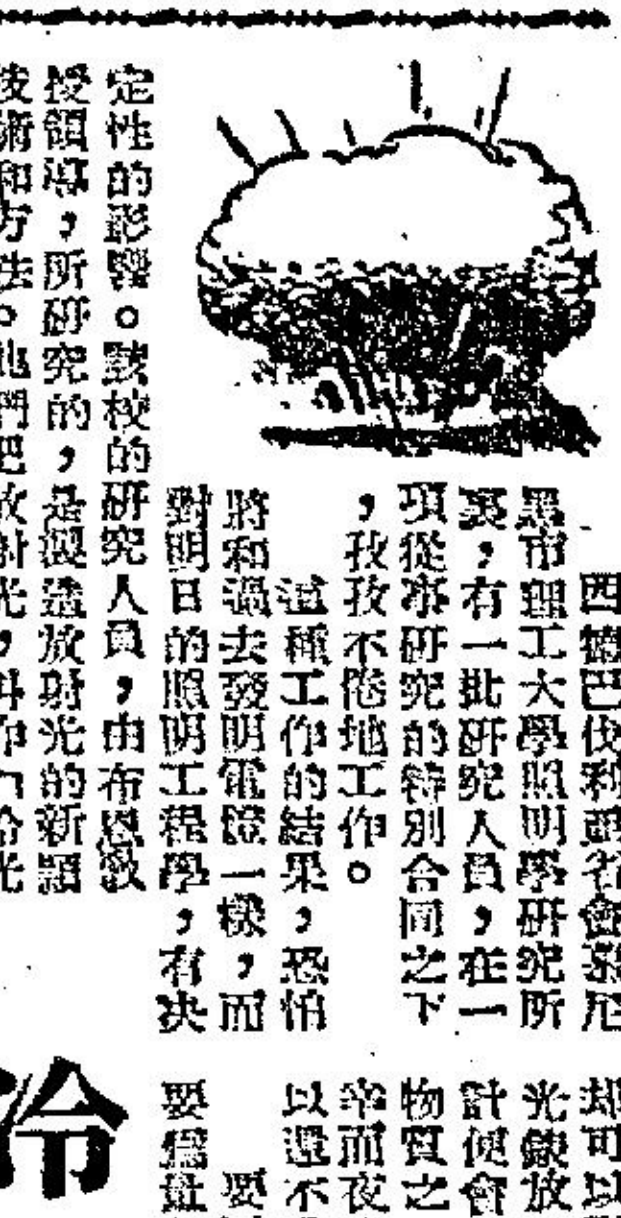 西德巴伐利亞省會慕尼
黑市理工大學照明學研究所
裏，有一批研究人員，在一
項從事研究的特別合同之下
，孜孜不倦地工作。
這種工作的結果，恐怕
將和過去發明電燈一樣，而
對明日的照明工程學，有决
定性的影響。該校的研究人員，由布恩敎
授領導，所研究的，是製造放射光的新題
技術和方法。他們把放射光，叫作「冷光
却可以
光線放
計便會
物質之
幸而夜
以還不
要
要
冷